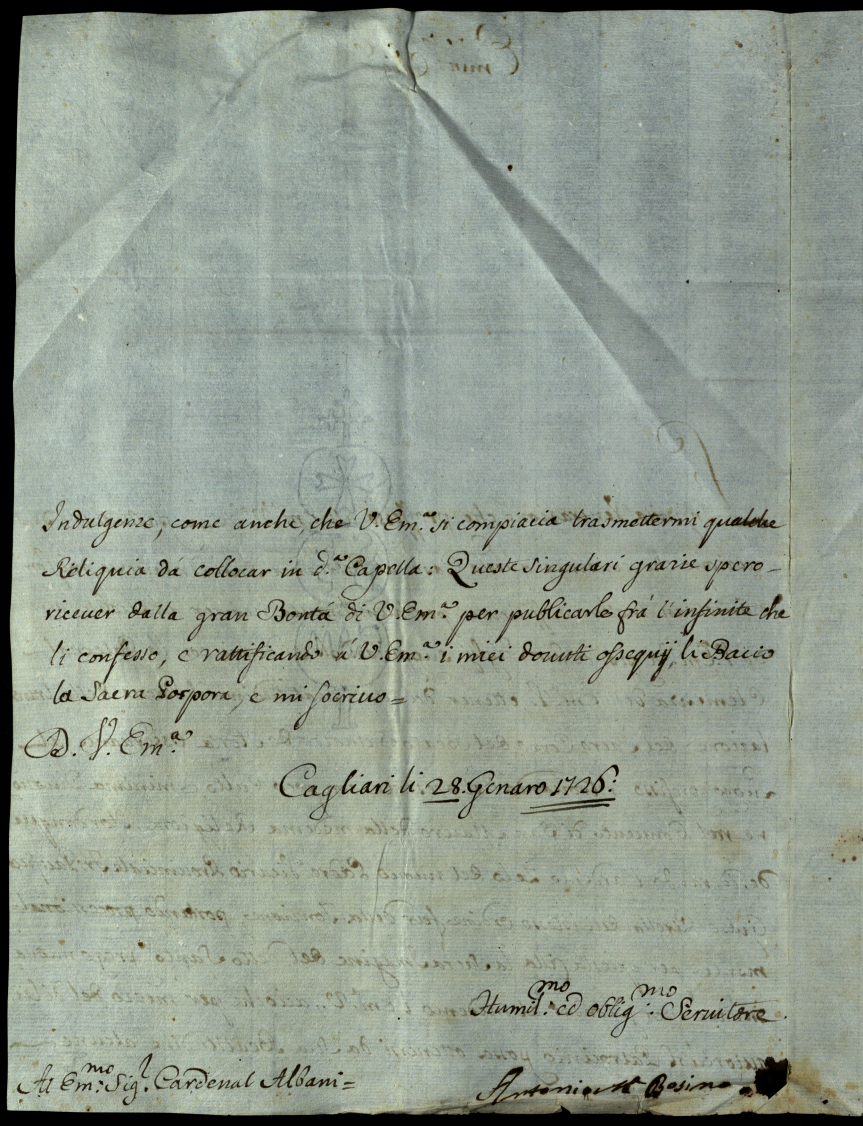 Indulgenze, come anche, che V. Em.ᵃ si compiacia trasmettermi qualche
Reliquia dá collocar in d.ᵃ Capella: Queste singulari grazie spero
ricever dalla gran Bontá di V. Em.ᵃ per publicarle frá l'infinite che
li confesso, e rattificando á V. Em.ᵃ i miei dovuti ossequij li Bacio
la Sacra Porpora, e mi soscrivo=
D. V. Em.ᵃ
Cagliari li 28. Genaro 1726.
Humil.ᵐᵒ ed oblig.ᵐᵒ Servitore.
Al Em.ᵐᵒ Sig.ʳ Cardenal Albani=
Antonio